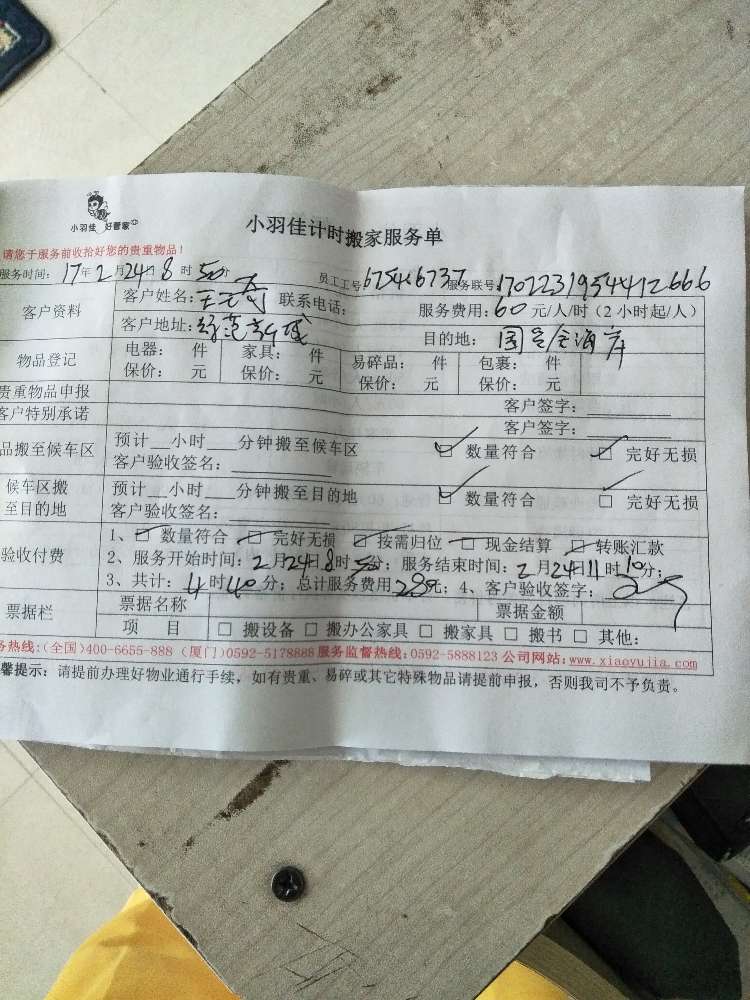 小羽佳 好管家
小羽佳计时搬家服务单
请您于服务前收拾好您的贵重物品！
服务时间：17年2月24日8时50分 员工工号 服务联号
客户资料 客户姓名： 联系电话： 服务费用：60元/人/时（2小时起/人）
客户地址： 目的地：
物品登记 电器： 件 家具： 件 易碎品： 件 包裹： 件
保价： 元 保价： 元 保价： 元 保价： 元
贵重物品申报 客户签字：
客户特别承诺 客户签字：
品搬至候车区 预计__小时___分钟搬至候车区 □ 数量符合 □ 完好无损
客户验收签名：
候车区搬 预计__小时___分钟搬至目的地 □ 数量符合 □ 完好无损
至目的地 客户验收签名：
验收付费 1、□ 数量符合 □ 完好无损 □ 按需归位 □ 现金结算 □ 转账汇款
2、服务开始时间：2月24日8时50分；服务结束时间：2月24日11时10分；
3、共计：4时40分；总计服务费用280元；4、客户验收签字：
票据栏 票据名称 票据金额
项 目 □ 搬设备 □ 搬办公家具 □ 搬家具 □ 搬书 □ 其他：
务热线：(全国)400-6655-888 (厦门)0592-5178888 服务监督热线：0592-5888123 公司网站：www.xiaoyujia.com
馨提示：请提前办理好物业通行手续，如有贵重、易碎或其它特殊物品请提前申报，否则我司不予负责。